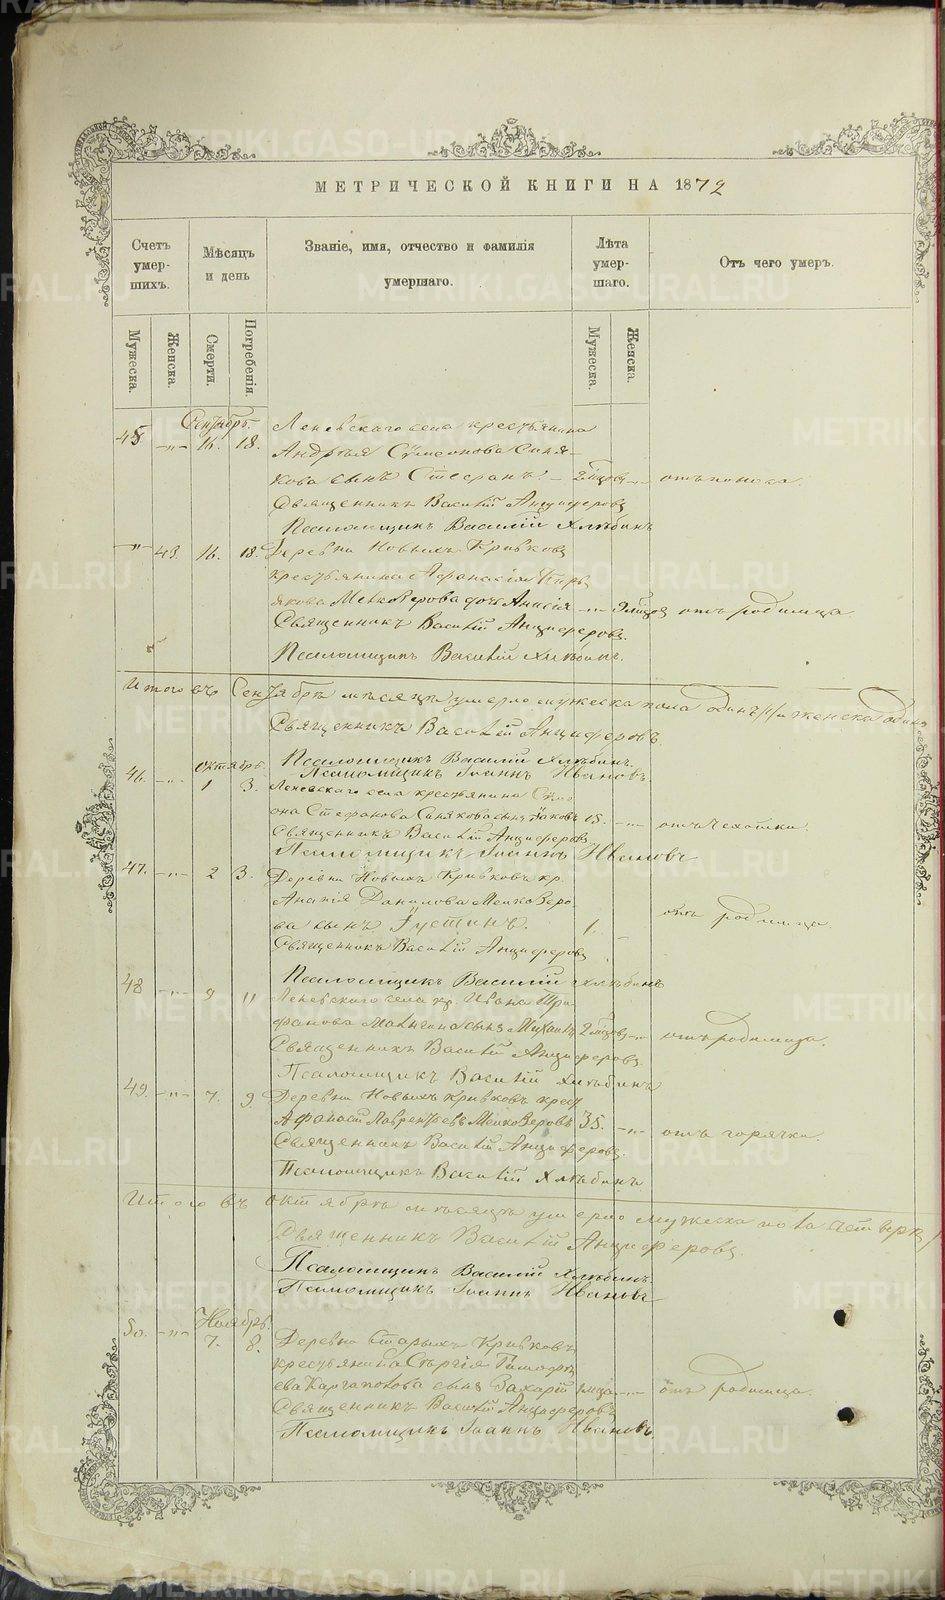 МЕТРИЧЕСКОЙ КНИГИ НА 1872
Счетъ умер-шихъ.
Мѣсяцъ и день
Званіе, имя, отчество и фамилія умершаго.
Лѣта умер-шаго.
Отъ чего умеръ.
Мужеска.
Женска.
Смерти.
Погребенія.
Мужеска.
Женска.
Сентябрь.
45 -„- 16. 18. Леневскаго села крестьянина
Андрея Симеонова Синя-
кова сынъ Стефанъ 2 мцовъ -„- отъ поноса.
Священникъ Василій Анциферовъ
Псаломщикъ Василій Хлѣбинъ
-„- 43. 16. 18. Деревни Новыхъ Кривковъ
крестьянина Афанасія
Мелкозерова дочь Анисія -„- 9 мцов отъ родимца.
Священникъ Василій Анциферовъ.
Псаломщикъ Василій Хлѣбинъ.
Итого въ Сентябрѣ мѣсяцѣ умерло мужеска пола одинъ /1/ и женска одна
Священникъ Василій Анциферовъ.
Псаломщикъ Василій Хлѣбинъ.
Псаломщикъ Іоаннъ Ивановъ
Октябрь.
46. -„- 1 3. Леневскаго села крестьянина
Стефанова Синякова сынъ Іаковъ 15. -„- отъ чахотки.
Священникъ Василій Анциферовъ
Псаломщикъ Іоаннъ Ивановъ
47. -„- 2 3. Деревни Новыхъ Кривковъ кр.
Ананія Данилова Мелкозеро-
ва сынъ Іустинъ. 1. отъ родимца.
Священникъ Василій Анциферовъ
Псаломщикъ Василій Хлѣбинъ
48 -„- 9 11 Леневскаго села кр. Ивана Три-
фанова сынъ Михаилъ 2 мцовъ -„- отъ родимца.
Священникъ Василій Анциферовъ.
Псаломщикъ Василій Хлѣбинъ
49. -„- 7. 9. Деревни Новыхъ Кривковъ крест
Афанасій Лаврентьевъ Мелкозеровъ 35. -„- отъ горячки.
Священникъ Василій Анциферовъ.
Псаломщикъ Василій Хлѣбинъ
Итого въ Октябрѣ мѣсяцѣ умерло мужеска пола четверо
Священникъ Василій Анциферовъ.
Псаломщикъ Василій Хлѣбинъ.
Псаломщикъ Іоаннъ Ивановъ
Ноябрь.
50. -„- 7. 8. Деревни Старыхъ Кривковъ
крестьянина Сергія Тимофе
ева Каргаполова сынъ Захарій 1 мца -„- отъ родимца.
Священникъ Василій Анциферовъ
Псаломщикъ Іоаннъ Ивановъ.
METRIKI.GASO-URAL.RU